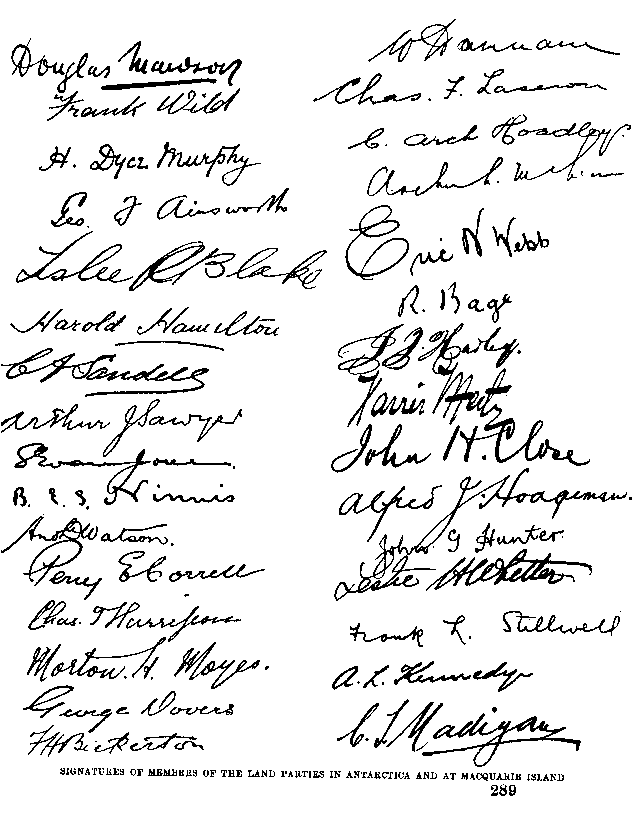 Douglas Mawson
Frank Wild
H. Dyce Murphy
Geo. F Ainsworth
Leslie R Blake
Harold Hamilton
C A Sandell
Arthur J Sawyer
S Evan Jones
B. E. S. Ninnis
And. Watson.
Percy E Correll
Chas. T Harrisson
Morton. H. Moyes.
George Dovers
F H Bickerton
W Hannam
Chas. F. Laseron
C. Arch Hoadley.
Archd. L. McLean
Eric N Webb
R. Bage
J. F. Hurley.
Xavier Mertz
John H. Close
Alfred J. Hodgeman.
John G Hunter
Leslie H Whetter
Frank L. Stillwell
A. L. Kennedy
C. T. Madigan
SIGNATURES OF MEMBERS OF THE LAND PARTIES IN ANTARCTICA AND AT MACQUARIE ISLAND
289